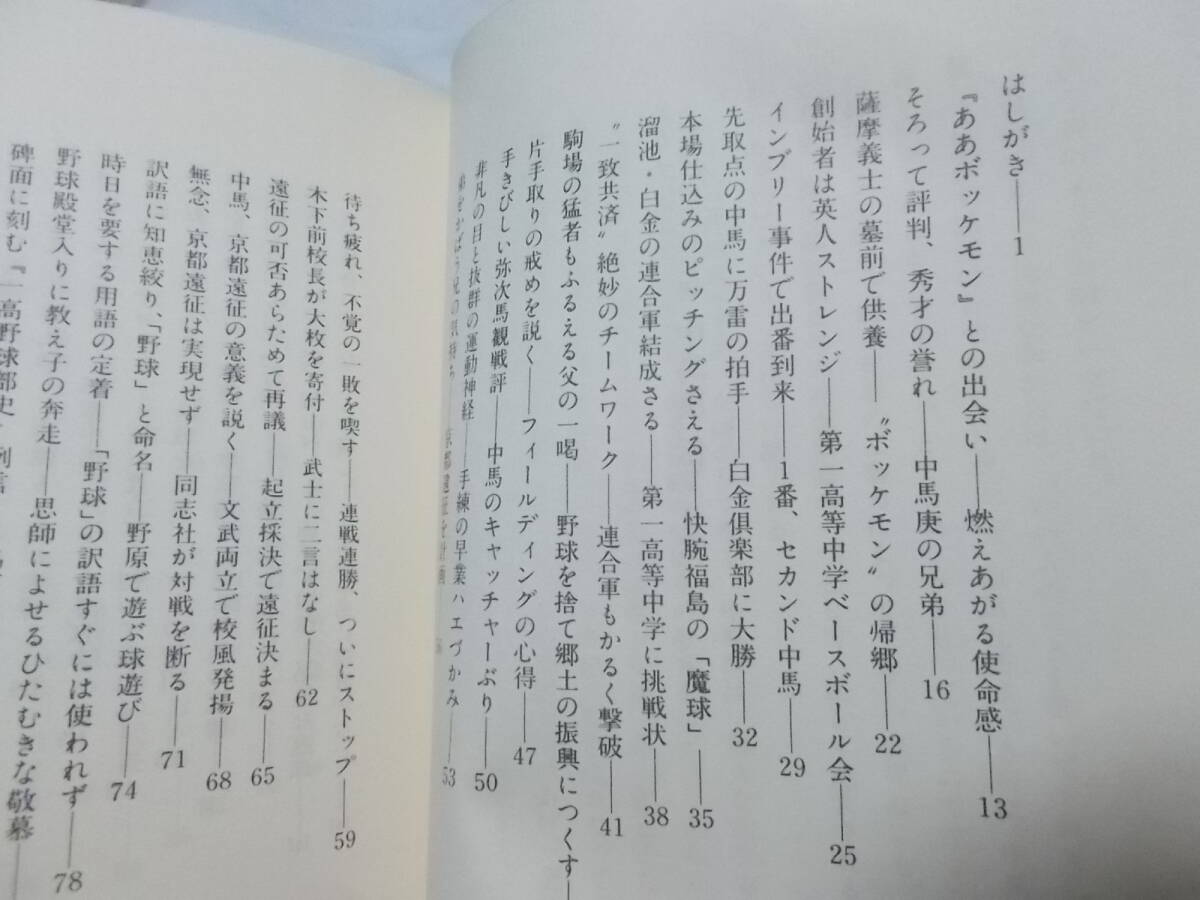 はしがき――1
『ああボッケモン』との出会い――燃えあがる使命感――13
そろって評判、秀才の誉れ――中馬庚の兄弟――16
薩摩義士の墓前で供養――〝ボッケモン〟の帰郷――22
創始者は英人ストレンジ――第一高等中学ベースボール会――25
インブリー事件で出番到来――1番、セカンド中馬――29
先取点の中馬に万雷の拍手――白金倶楽部に大勝――32
本場仕込みのピッチングさえる――快腕福島の「魔球」――35
溜池・白金の連合軍結成さる――第一高等中学に挑戦状――38
〝一致共済〟絶妙のチームワーク――連合軍もかるく撃破――41
駒場の猛者もふるえる父の一喝――野球を捨て郷土の振興につくす――
片手取りの戒めを説く――フィールディングの心得――47
手きびしい弥次馬観戦評――中馬のキャッチャーぶり――50
非凡の目と抜群の運動神経――手練の早業ハエづかみ――53
待ち疲れ、不覚の一敗を喫す――連戦連勝、ついにストップ――59
木下前校長が大枚を寄付――武士に二言はなし――62
遠征の可否あらためて再議――起立採決で遠征決まる――65
中馬、京都遠征の意義を説く――文武両立で校風発揚――68
無念、京都遠征は実現せず――同志社が対戦を断る――71
訳語に知恵絞り、「野球」と命名――野原で遊ぶ球遊び――74
時日を要する用語の定着――「野球」の訳語すぐには使われず――78
野球殿堂入りに教え子の奔走――恩師によせるひたむきな敬慕――
碑面に刻む『一高野球部史』例言